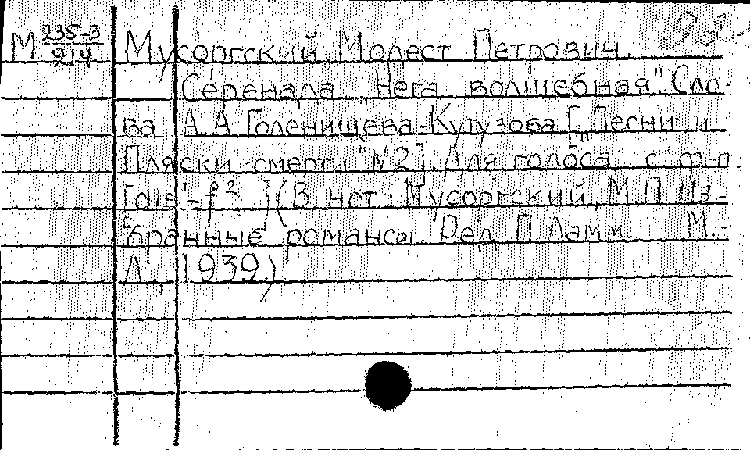 М 235-3/214 Мусоргский Модест Петрович.
Серенада "Нега волшебная". Сло-
ва А.А. Голенищева-Кутузова ["Песни и
пляски смерти" №2]. Для голоса с ф-п.
(В нот.: Мусоргский, М.П. Из-
бранные романсы. Ред. П. Ламм. М.-
Л., 1939)